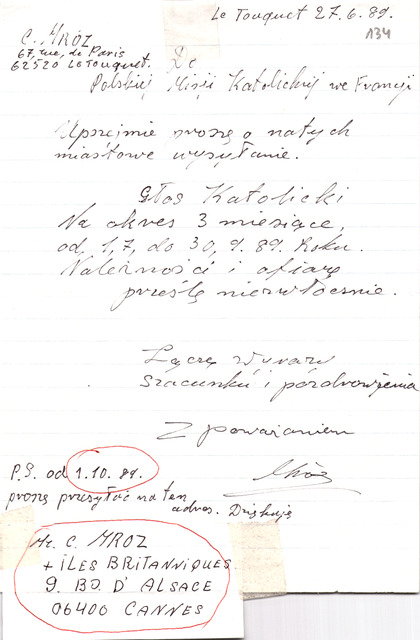 Le Touquet 27.6.89.
134
C. MRÓZ
67, rue, de Paris
62520 Le Touquet.
Do
Polskiej Misji Katolickiej we Francji
Uprzejmie proszę o natych
miastowe wysyłanie.
Głos Katolicki
Na okres 3 miesiące,
od, 1,7, do 30, 9. 89. Roku.
Należności i ofiarę
prześlę niezwłocznie.
Łączę wyrazy
szacunku i pozdrowienia
Z poważaniem
Mróz
P.S. od 1.10. 89.
proszę przesyłać na ten
adres. Dziękuję
Mr. C. MROZ
+ ILES BRITANNIQUES
9. BD. D' ALSACE
06400 CANNES